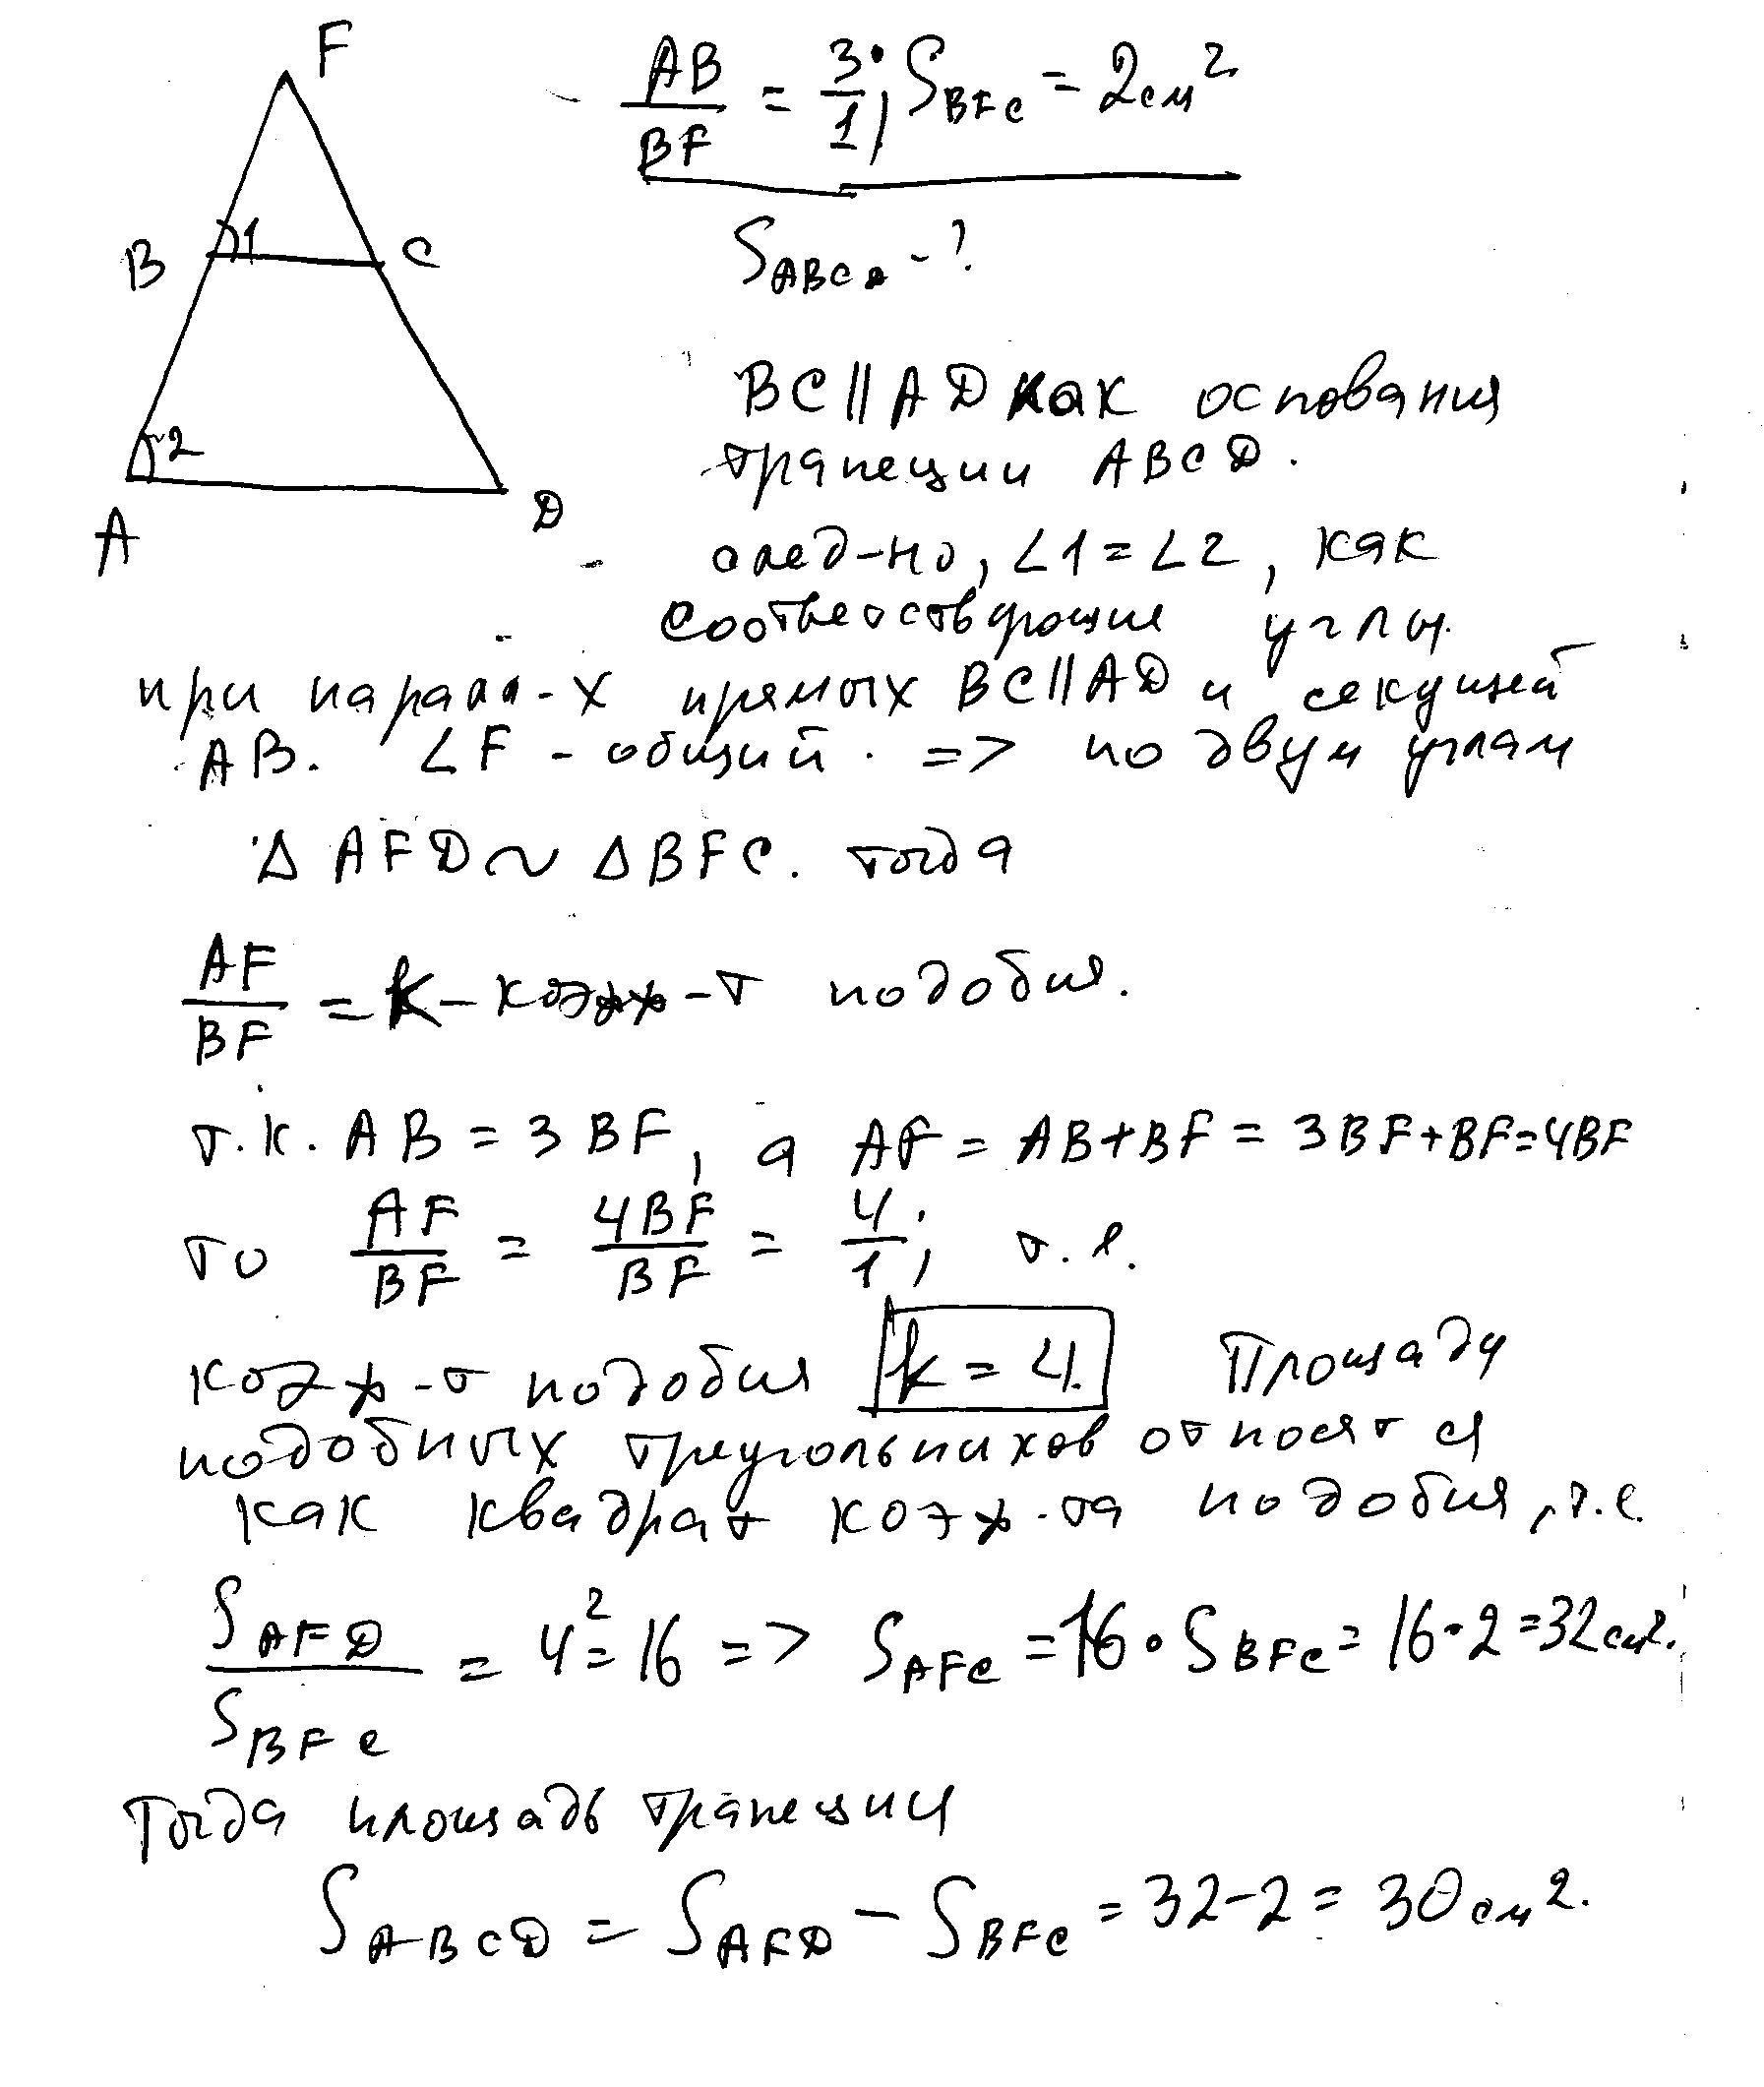 F
AB/BF = 3/1; S_BFC = 2см²
B 1 C
S_ABCD - ?
2
A D
BC || AD как основания
трапеции ABCD.
след-но, ∠1 = ∠2, как
соответствующие углы
при парал-х прямых BC || AD и секущей
AB. ∠F - общий. => по двум углам
Δ AFD ~ Δ BFC. тогда
AF/BF = k - коэфф-т подобия.
т.к. AB = 3BF, а AF = AB+BF = 3BF+BF=4BF
то AF/BF = 4BF/BF = 4/1; т.е.
коэф-т подобия k = 4. Площади
подобных треугольников относятся
как квадрат коэф-та подобия, т.е.
S_AFD/S_BFC = 4² = 16 => S_AFC = 16 • S_BFC = 16•2=32см².
Тогда площадь трапеции
S_ABCD = S_AFD - S_BFC = 32-2 = 30см².